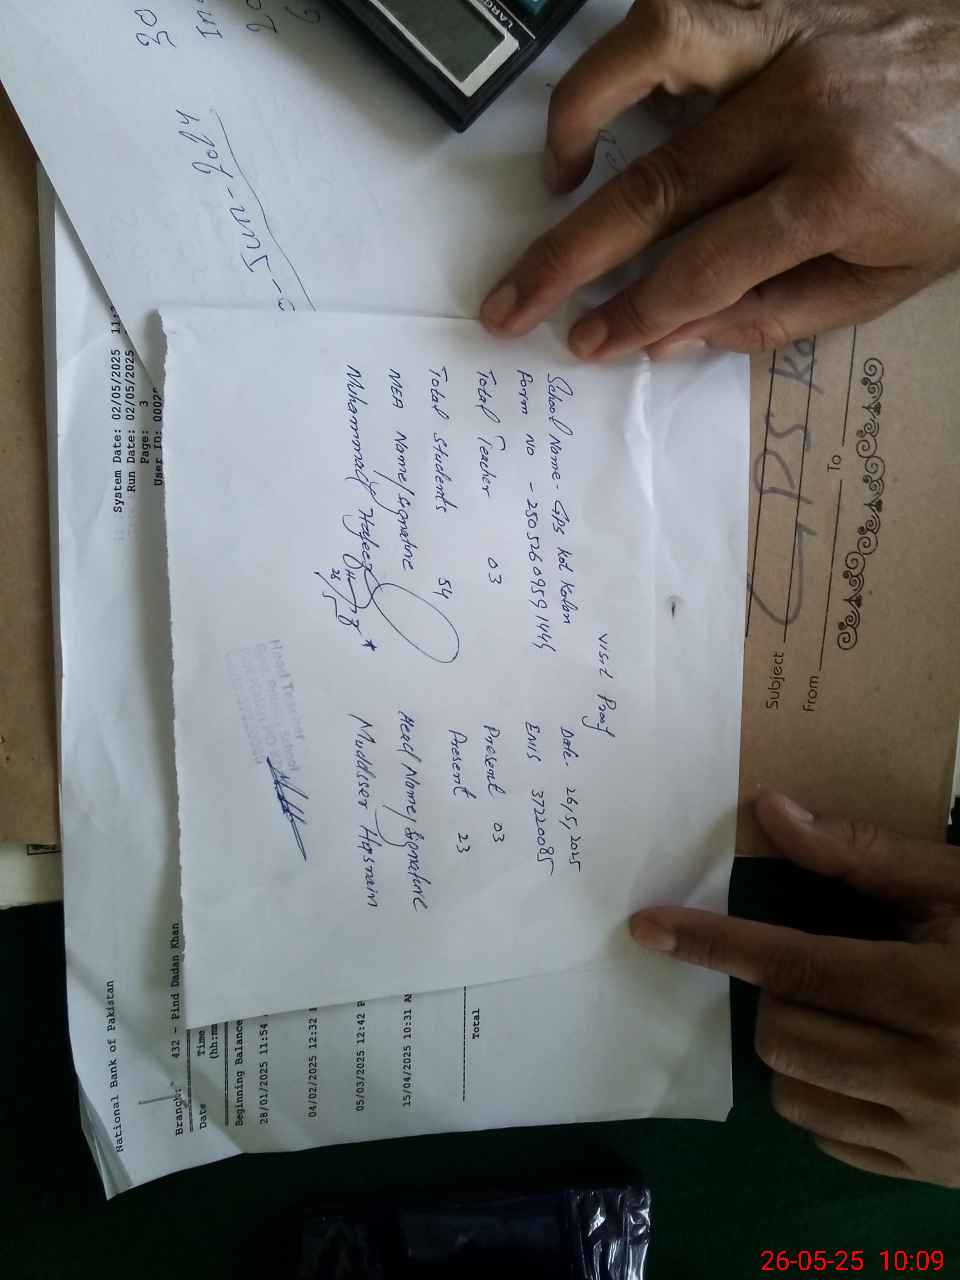 Visit Proof
School Name - GPS Kot Kalan Date. 26/5/2025
Form No - 25052609591444 EMIS 37220085
Total Teacher 03 Present 03
Total students 54 Present 23
MEA Name/signature Head Name/Signature
Muhammad Hafeez Muddsser Hasnain
26/5
Head Teacher
School
System Date: 02/05/2025
Run Date: 02/05/2025
Page: 3
User ID:
National Bank of Pakistan
Branch: 432 - Pind Dadan Khan
Date Time
Beginning Balance
28/01/2025 11:54
04/02/2025 12:32 P
05/03/2025 12:42 P
15/04/2025 10:31 A
Total
GPS Ko
Subject
From To
LARG
26-05-25 10:09